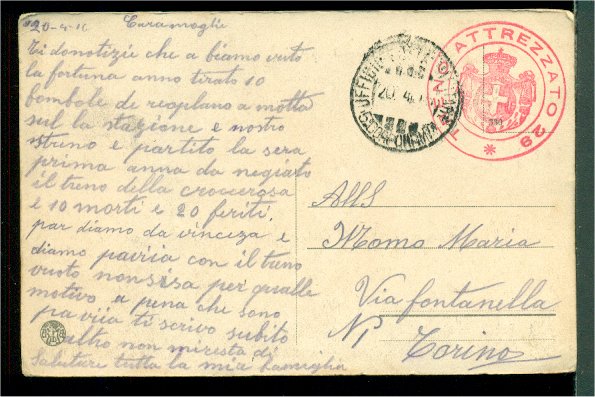 20-4-16 Cara moglie
Ti do notizie che a biamo vuto
la fortuna anno tirato 10
bombole di reoplano a motta
sul la stazione e nostro
streno e partito la sera
prima anna da negiato
il treno della crocerosa
e 10 morti e 20 feriti.
par diamo da vincenza e
diamo paviia con il treno
vuoto non si sa per qualle
motivo a pena che sono
paviia ti scrivo subito
altro non mi resta di
Salutare tutta la mia famiglia
TRENO ATTREZZATO 29
20 4
All S
Momo Maria
Via fontanella
N 1
Torino